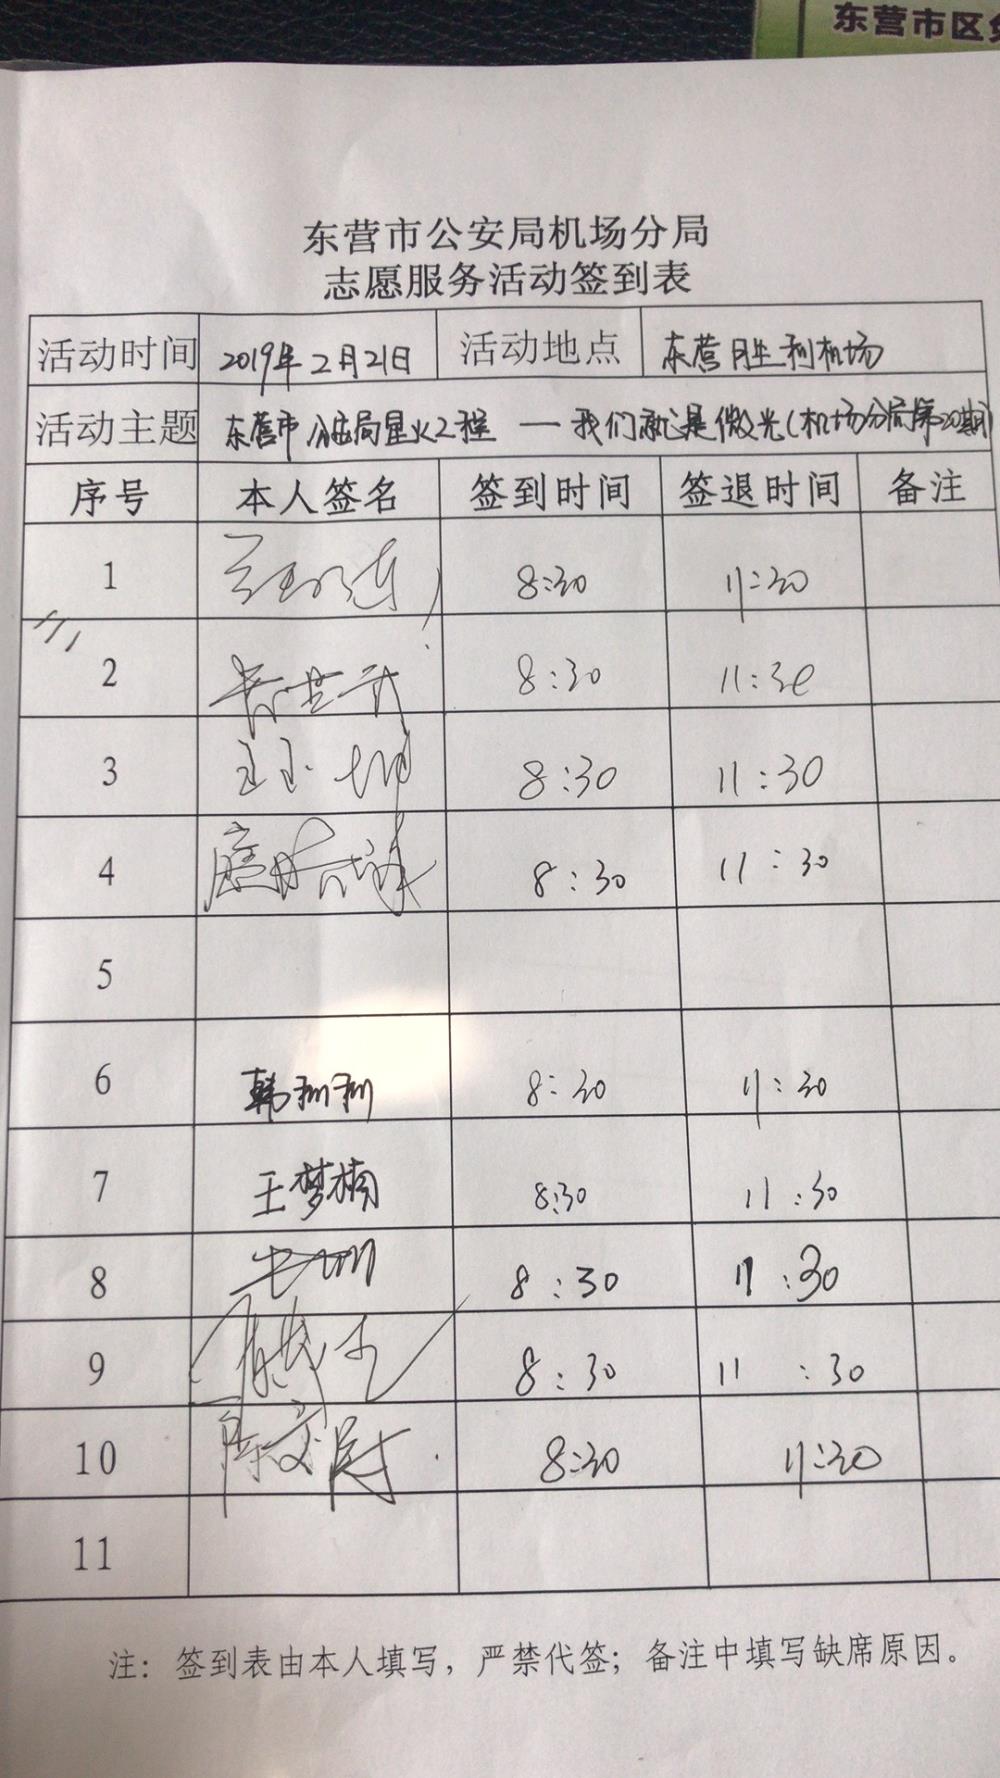 东营市区
东营市公安局机场分局
志愿服务活动签到表
活动时间 2019年2月21日 活动地点 东营胜利机场
活动主题 东营市公安局星火工程 — 我们就是微光(机场分局第20期)
序号 本人签名 签到时间 签退时间 备注
1 8:30 11:30
2 8:30 11:30
3 8:30 11:30
4 8:30 11:30
5
6 韩 8:30 11:30
7 王梦楠 8:30 11:30
8 8:30 11:30
9 8:30 11:30
10 8:30 11:30
11
注：签到表由本人填写，严禁代签；备注中填写缺席原因。